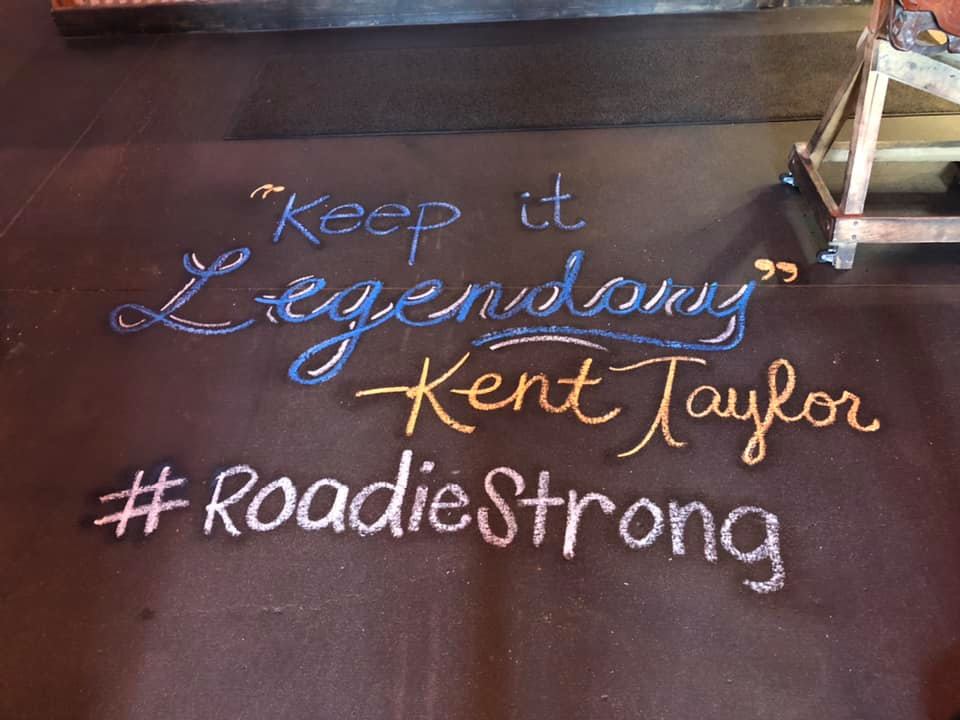 "Keep it
Legendary"
-Kent Taylor
#RoadieStrong